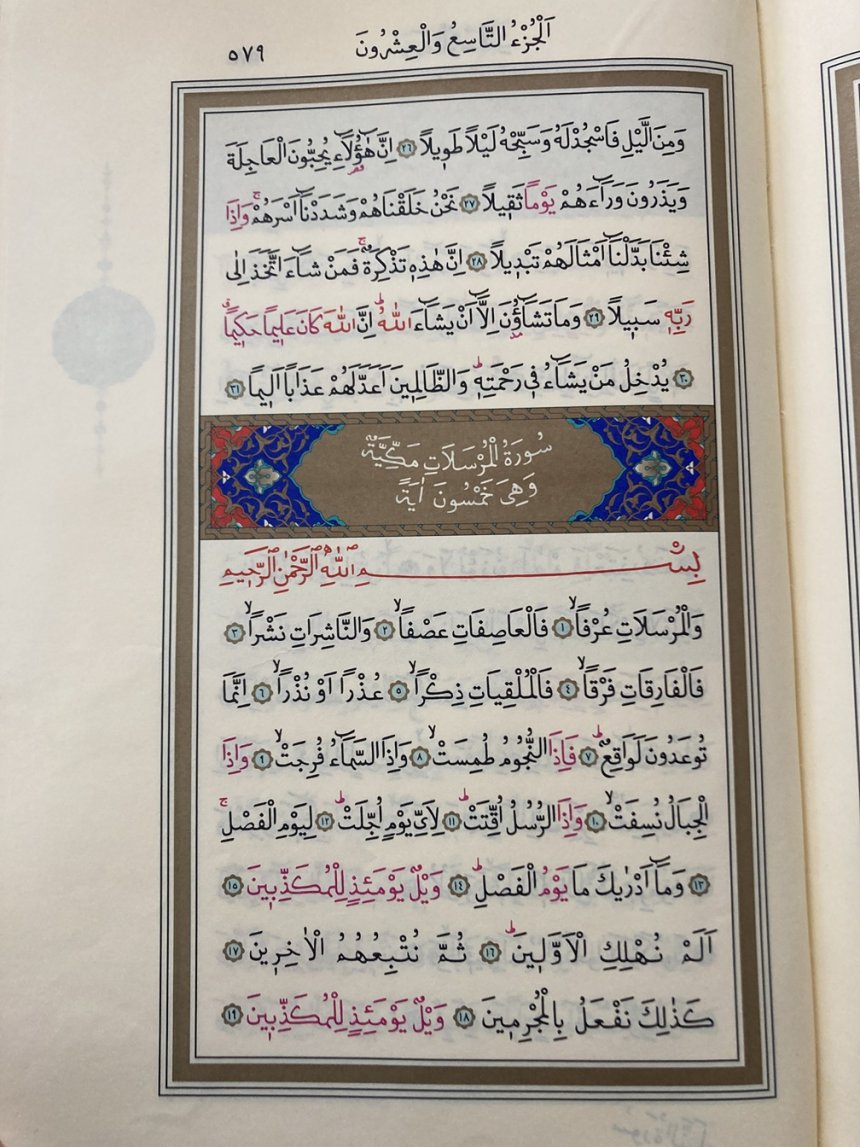 اَلْجُزْءُ التَّاسِعُ وَالْعِشْرُونَ
٥٧٩
وَمِنَ الَّيْلِ فَاسْجُدْ لَهُ وَسَبِّحْهُ لَيْلًا طَوٖيلًا ٢٦ اِنَّ هٰٓؤُ۬لَٓاءِ يُحِبُّونَ الْعَاجِلَةَ
وَيَذَرُونَ وَرَٓاءَهُمْ يَوْمًا ثَقٖيلًا ٢٧ نَحْنُ خَلَقْنَاهُمْ وَشَدَدْنَٓا اَسْرَهُمْۚ وَاِذَا
شِئْنَا بَدَّلْنَٓا اَمْثَالَهُمْ تَبْدٖيلًا ٢٨ اِنَّ هٰذِهٖ تَذْكِرَةٌۚ فَمَنْ شَٓاءَ اتَّخَذَ اِلٰى
رَبِّهٖ سَبٖيلًا ٢٩ وَمَا تَشَٓاؤُ۫نَ اِلَّٓا اَنْ يَشَٓاءَ اللّٰهُؕ اِنَّ اللّٰهَ كَانَ عَلٖيمًا حَكٖيمًاۗ
٣٠ يُدْخِلُ مَنْ يَشَٓاءُ فٖى رَحْمَتِهٖؕ وَالظَّالِمٖينَ اَعَدَّ لَهُمْ عَذَابًا اَلٖيمًا ٣١
سُورَةُ الْمُرْسَلَاتِ مَكِّيَّةٌ
وَهِىَ خَمْسُونَ اٰيَةً
بِسْمِ اللّٰهِ الرَّحْمٰنِ الرَّحٖيمِ
وَالْمُرْسَلَاتِ عُرْفًاۙ ١ فَالْعَاصِفَاتِ عَصْفًاۙ ٢ وَالنَّاشِرَاتِ نَشْرًاۙ ٣
فَالْفَارِقَاتِ فَرْقًاۙ ٤ فَالْمُلْقِيَاتِ ذِكْرًاۙ ٥ عُذْرًا اَوْ نُذْرًاۙ ٦ اِنَّمَا
تُوعَدُونَ لَوَاقِعٌؕ ٧ فَاِذَا النُّجُومُ طُمِسَتْۙ ٨ وَاِذَا السَّمَٓاءُ فُرِجَتْۙ ٩ وَاِذَا
الْجِبَالُ نُسِفَتْۙ ١٠ وَاِذَا الرُّسُلُ اُقِّتَتْؕ ١١ لِاَىِّ يَوْمٍ اُجِّلَتْؕ ١٢ لِيَوْمِ الْفَصْلِۚ
١٣ وَمَٓا اَدْرٰيكَ مَا يَوْمُ الْفَصْلِؕ ١٤ وَيْلٌ يَوْمَئِذٍ لِلْمُكَذِّبٖينَ ١٥
اَلَمْ نُهْلِكِ الْاَوَّلٖينَؕ ١٦ ثُمَّ نُتْبِعُهُمُ الْاٰخِرٖينَ ١٧
كَذٰلِكَ نَفْعَلُ بِالْمُجْرِمٖينَ ١٨ وَيْلٌ يَوْمَئِذٍ لِلْمُكَذِّبٖينَ ١٩